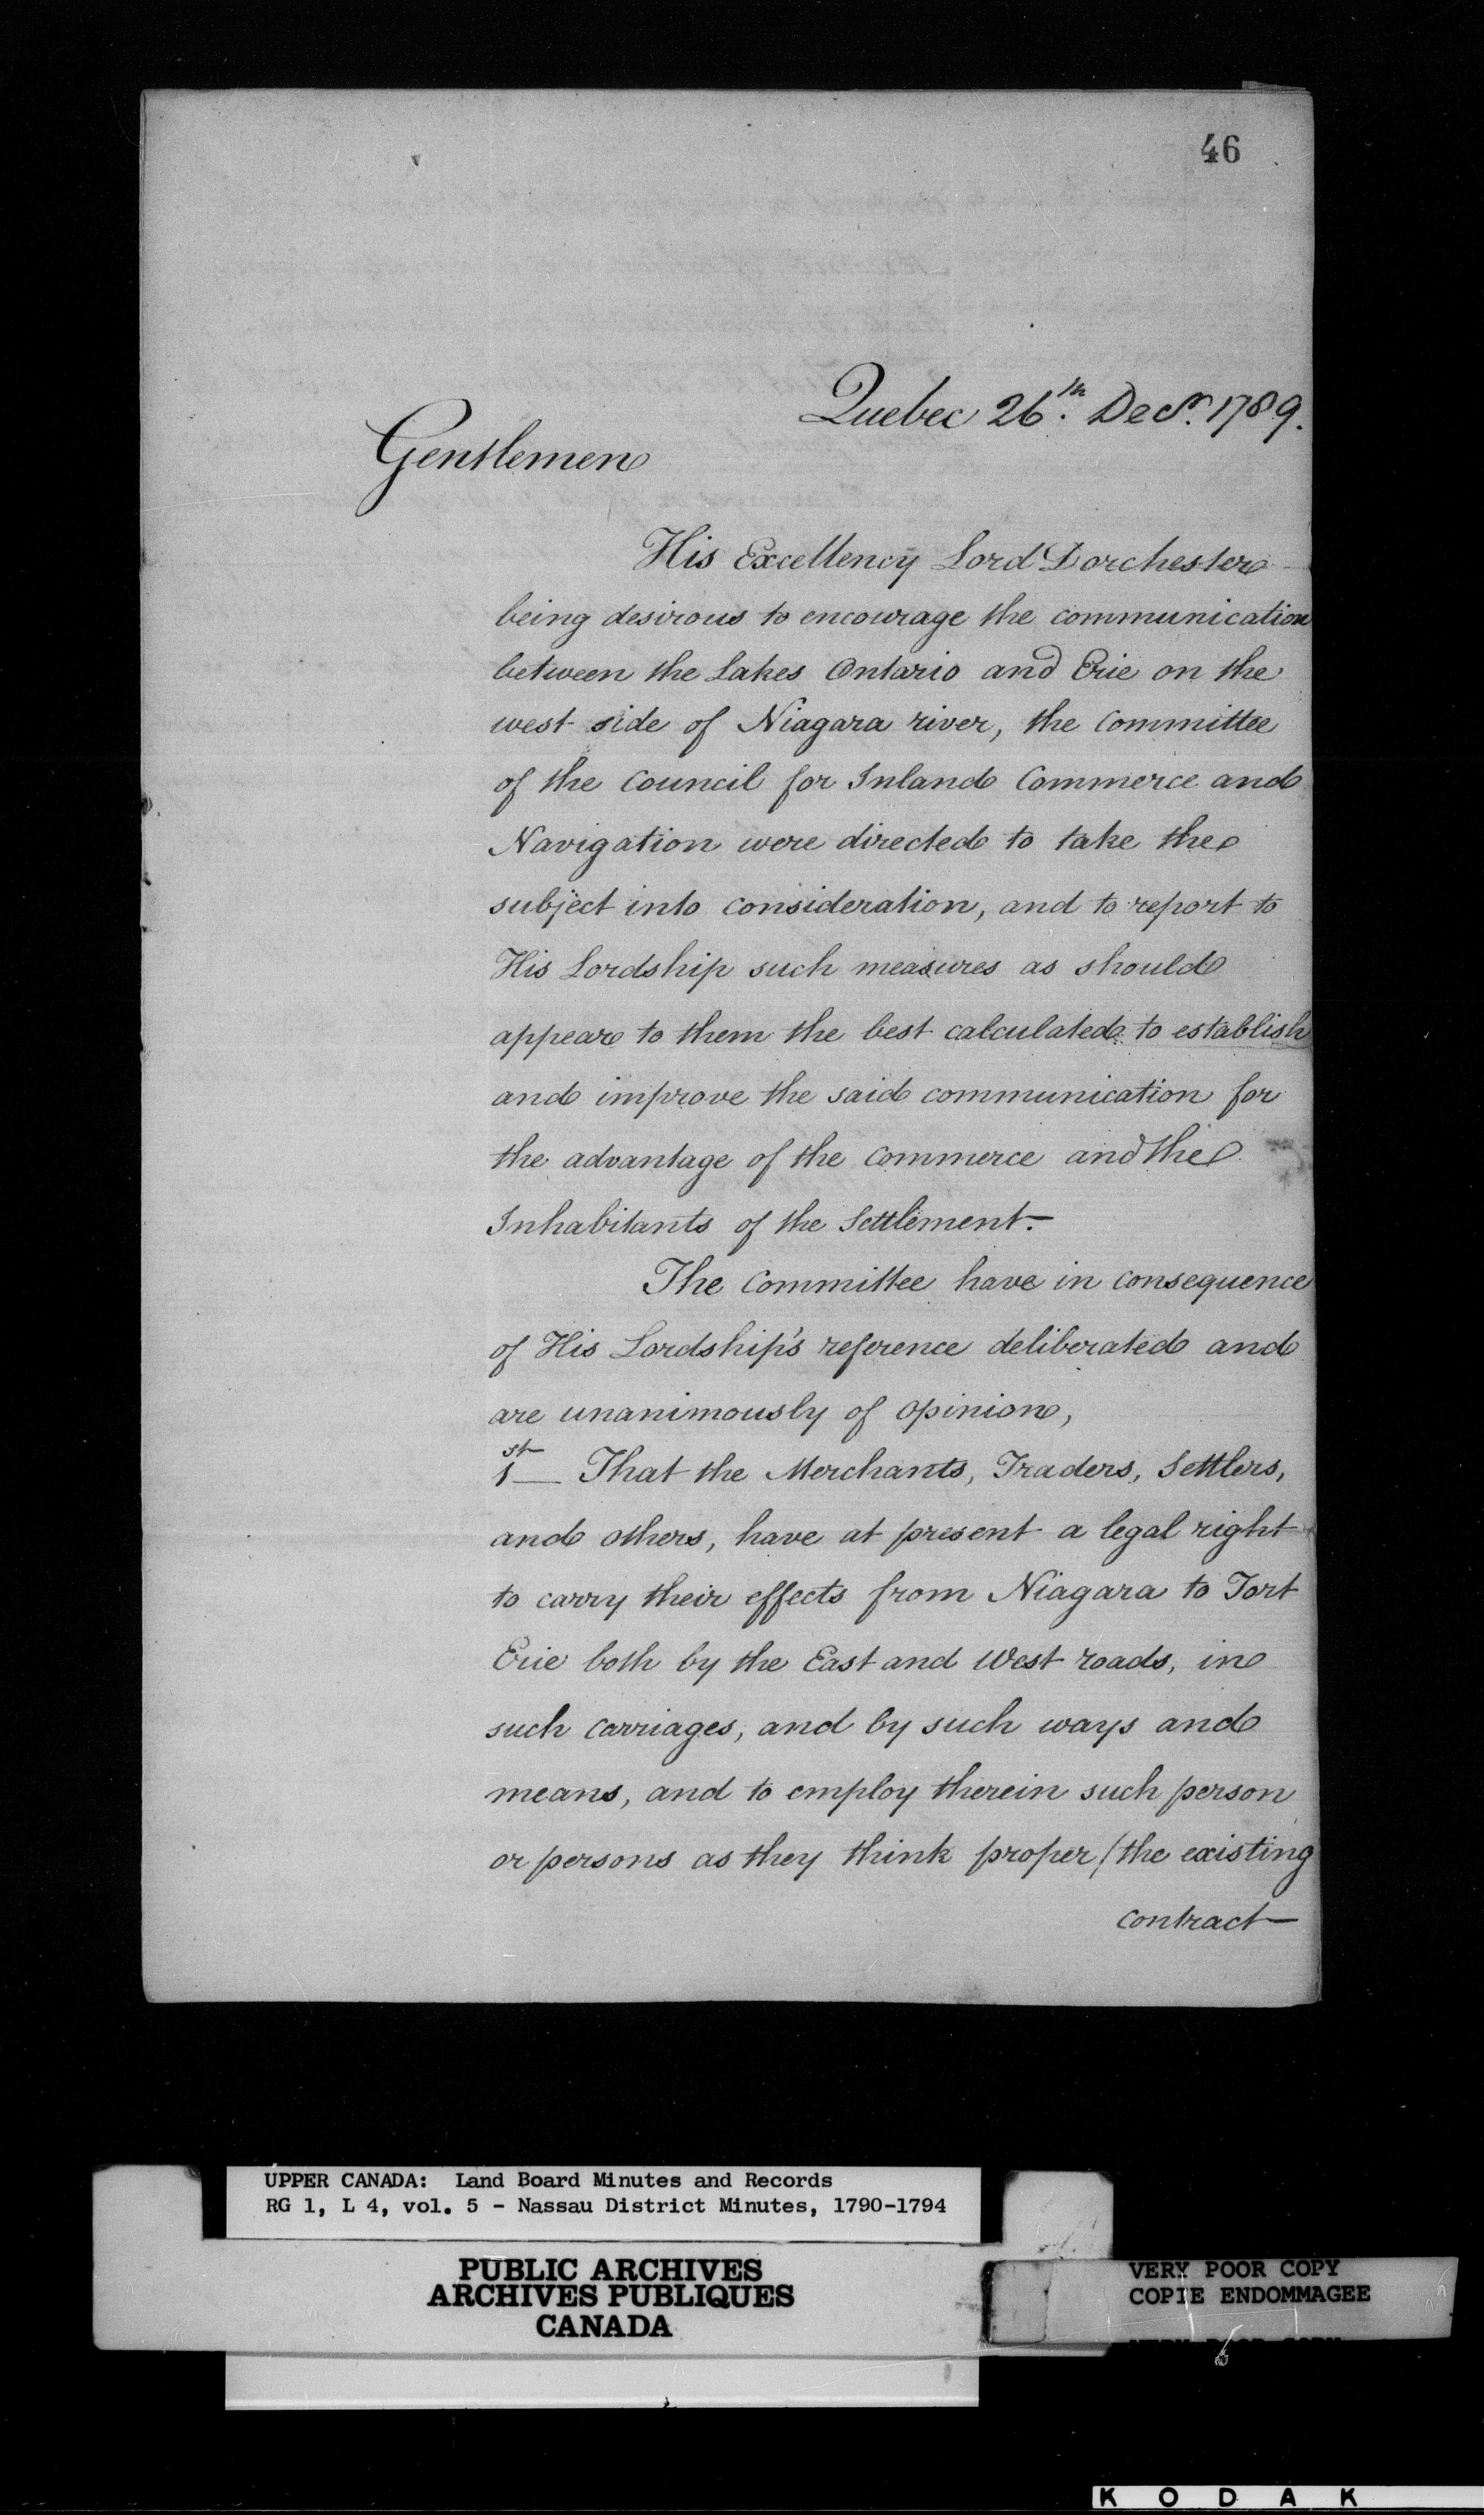 46
Quebec 26th. Decr. 1789.
Gentlemen
His Excellency Lord Dorchester
being desirous to encourage the communication
between the Lakes Ontario and Erie on the
west side of Niagara river, the Committee
of the Council for Inland Commerce and
Navigation were directed to take the
subject into consideration, and to report to
His Lordship such measures as should
appear to them the best calculated to establish
and improve the said communication for
the advantage of the Commerce and the
Inhabitants of the Settlement.—
The Committee have in consequence
of His Lordship's reference deliberated and
are unanimously of opinion,
1st — That the Merchants, Traders, Settlers,
and others, have at present a legal right
to carry their effects from Niagara to Fort
Erie both by the East and West roads, in
such carriages, and by such ways and
means, and to employ therein such person
or persons as they think proper / the existing
contract—
UPPER CANADA: Land Board Minutes and Records
RG 1, L 4, vol. 5 - Nassau District Minutes, 1790-1794
PUBLIC ARCHIVES
ARCHIVES PUBLIQUES
CANADA
VERY POOR COPY
COPIE ENDOMMAGEE
VERY POOR COPY
KODAK